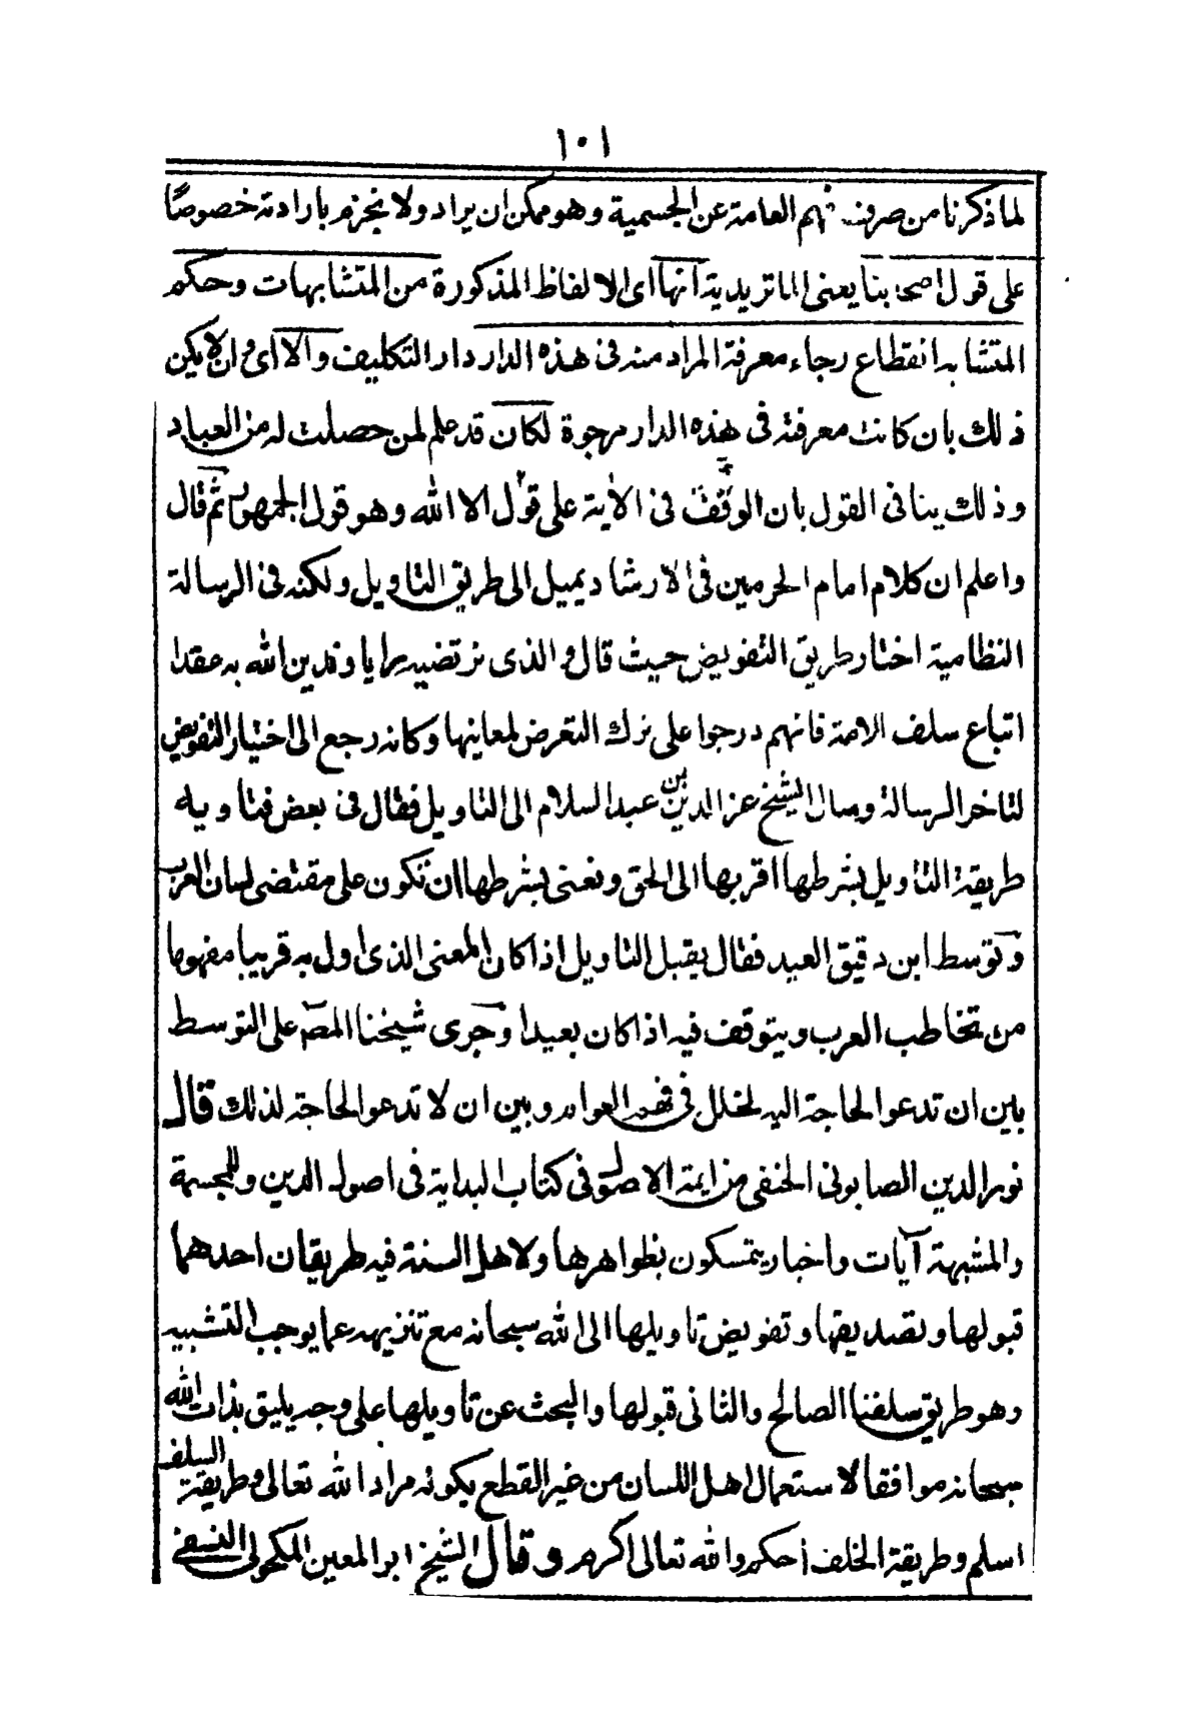 ١٠١
لما ذكرنا من صرف فهم العامة عن الجسمية وهو ممكن ان يراد ولا يجزم بارادته خصوصًا
على قول اصحابنا يعنى الماتريدية انها اى الالفاظ المذكورة من المتشابهات وحكم
المتشابه انقطاع رجاء معرفة المراد منه فى هذه الدار دار التكليف والا اى وان لا يكن
ذلك بان كانت معرفته فى هذه الدار مرجوة لكان قد علم لمن حصلت له من العباد
وذلك ينافى القول بان الوقف فى الأية على قول الا الله وهو قول الجمهور ثم قال
واعلم ان كلام امام الحرمين فى الارشاد يميل الى طريق التاويل ولكنه فى الرسالة
النظامية اختار طريق التفويض حيث قال والذى نرتضيه رايا وندين الله به عقدا
اتباع سلف الامة فانهم درجوا على ترك التعرض لمعانيها وكانه رجع الى اختيار التفويض
لتاخر الرسالة ومال الشيخ عز الدين بن عبد السلام الى التاويل فقال فى بعض فتاويه
طريقة التاويل بشرطها اقربها الى الحق ونعنى بشرطها ان تكون على مقتضى لسان العرب
وتوسط ابن دقيق العيد فقال يقبل التاويل اذا كان المعنى الذى اول به قريبا مفهوما
من تخاطب العرب ويتوقف فيه اذا كان بعيدا وجرى شيخنا المص على التوسط
بين ان تدعو الحاجة اليه لخلل فى فهم العوام وبين ان لا تدعو الحاجة لذلك قال
نور الدين الصابونى الحنفى من ايمة الاصول فى كتاب البداية فى اصول الدين وللمجسمة
والمشبهة آيات واخبار يتمسكون بظواهرها ولاهل السنة فيه طريقان احدهما
قبولها وتصديقها وتفويض تاويلها الى الله سبحانه مع تنزيهه عما يوجب التشبيه
وهو طريق سلفنا الصالح والثانى قبولها والبحث عن تاويلها على وجه يليق بذات الله
سبحانه موافقا لاستعمال اهل اللسان من غير القطع بكونه مراد الله تعالى وطريقة السلف
اسلم وطريقة الخلف أحكم والله تعالى اكرم وقال الشيخ ابو المعين المكحولى النسفى